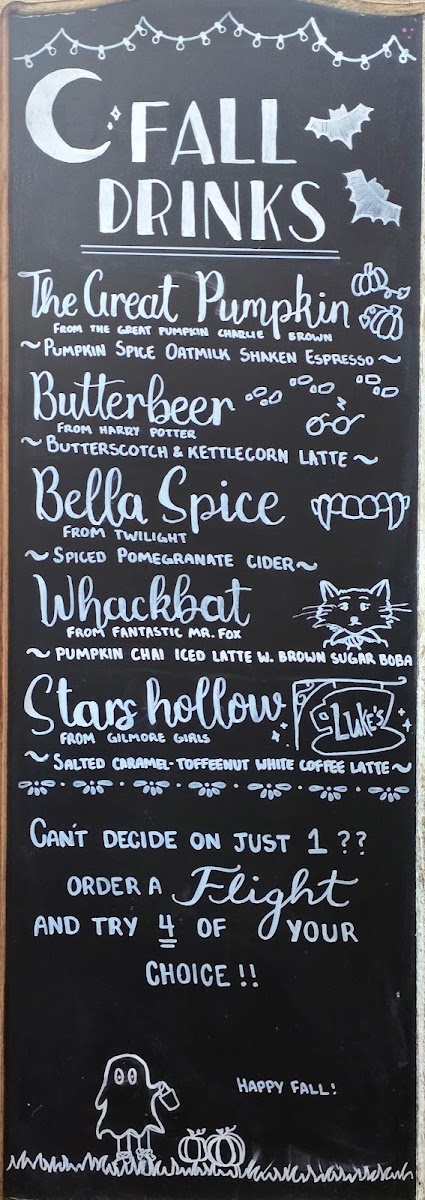 FALL
DRINKS
The Great Pumpkin
FROM THE GREAT PUMPKIN CHARLIE BROWN
~PUMPKIN SPICE OATMILK SHAKEN ESPRESSO~
Butterbeer
FROM HARRY POTTER
~BUTTERSCOTCH & KETTLECORN LATTE~
Bella Spice
FROM TWILIGHT
~SPICED POMEGRANATE CIDER~
Whackbat
FROM FANTASTIC MR. FOX
~ PUMPKIN CHAI ICED LATTE W. BROWN SUGAR BOBA
Stars hollow
LUKE'S
FROM GILMORE GIRLS
~ SALTED CARAMEL-TOFFEENUT WHITE COFFEE LATTE~
CAN'T DECIDE ON JUST 1 ??
ORDER A Flight
AND TRY 4 OF YOUR
CHOICE !!
HAPPY FALL!